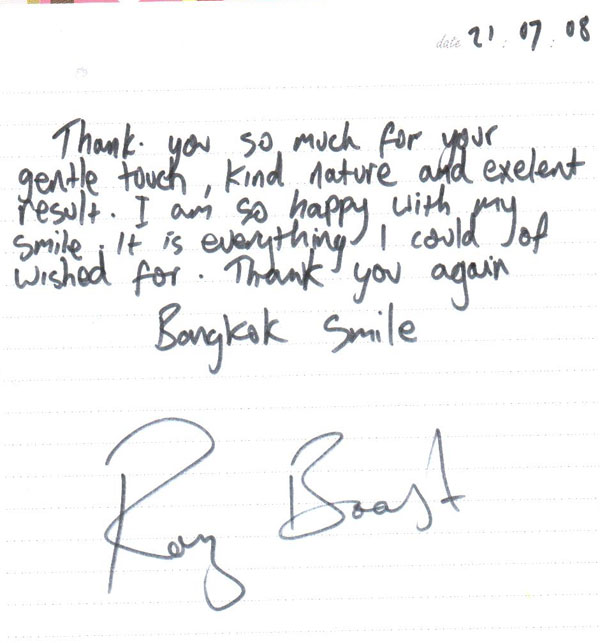 date 21.07.08
Thank. you so much for your
gentle touch, kind nature and exelent
result. I am so happy with my
smile. It is everything I could of
wished for. Thank you again
Bangkok Smile
Ray